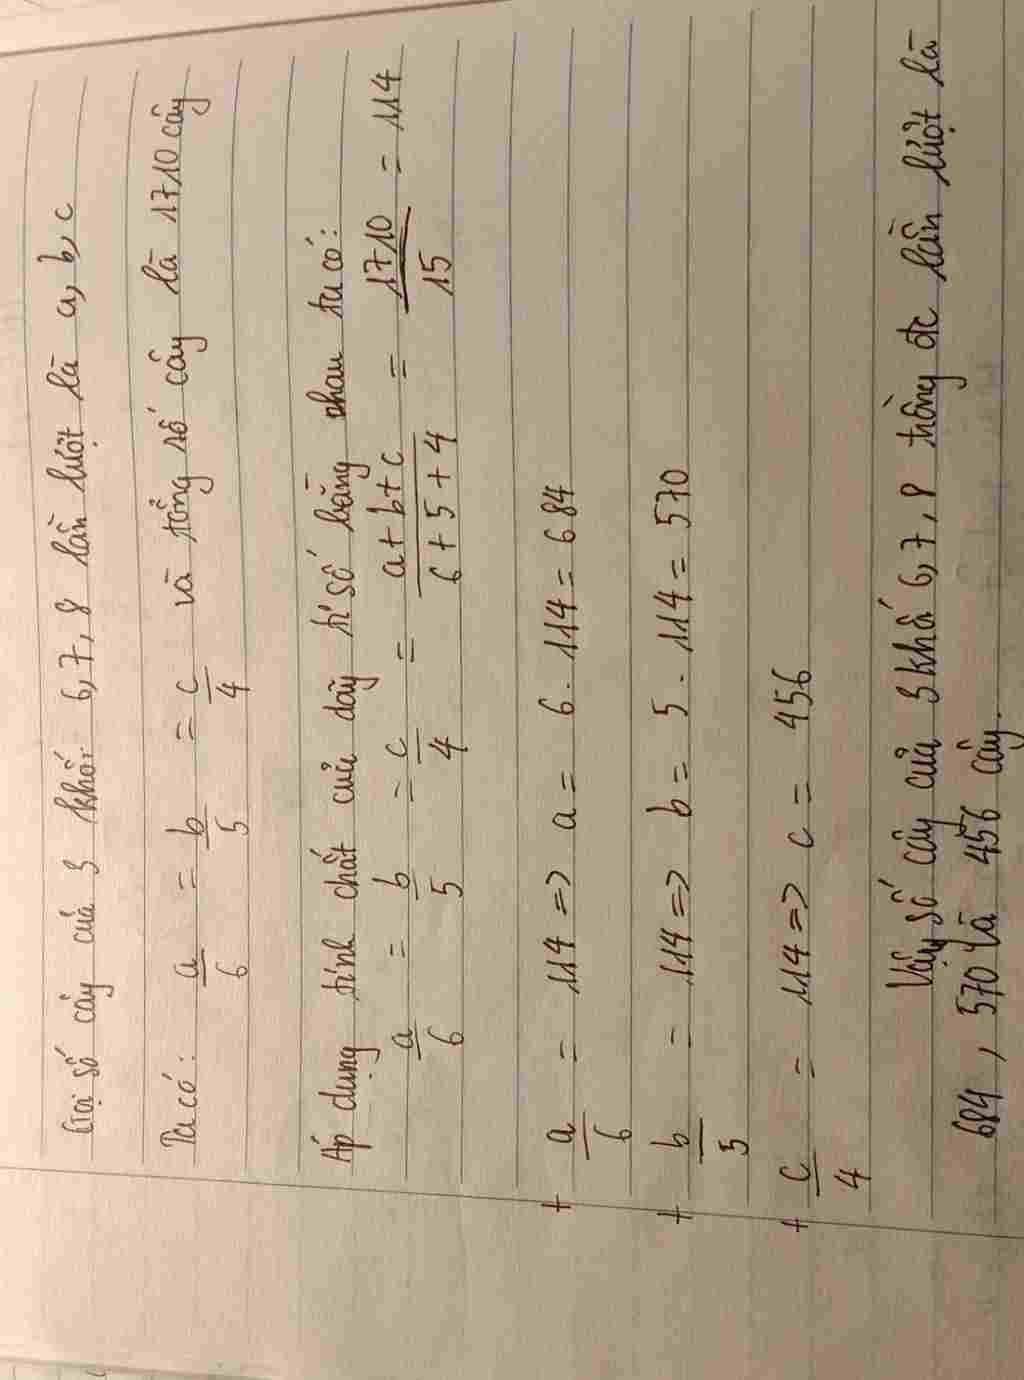 Gọi số cây của 3 khối 6, 7, 8 lần lượt là a, b, c
Ta có: a/6 = b/5 = c/4 và tổng số cây là 1710 cây
Áp dụng tính chất của dãy tỉ số bằng nhau ta có:
a/6 = b/5 = c/4 = a+b+c/6+5+4 = 1710/15 = 114
+ a/6 = 114 => a = 6 . 114 = 684
+ b/5 = 114 => b = 5 . 114 = 570
+ c/4 = 114 => c = 456
Vậy số cây của 3 khố 6, 7, 8 trồng đc lần lượt là
684, 570 là 456 cây.